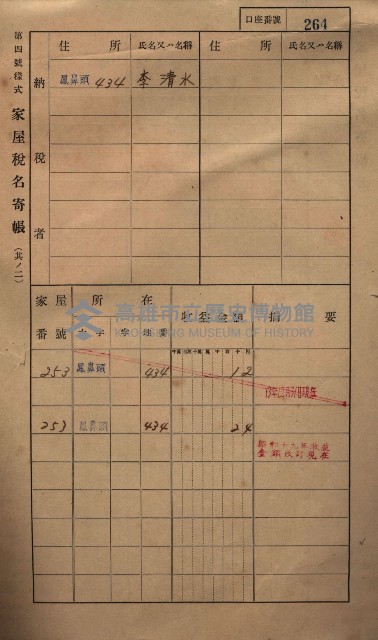 口座番號 264
第四號樣式 家屋稅名寄帳 (其ノ二)
納稅者
住所 氏名又ハ名稱 住所 氏名又ハ名稱
鳳鼻頭 434 李清水
家屋番號 所在 收益金額 摘要
大字 字 地番
253 鳳鼻頭 434 12
253 鳳鼻頭 434 24
昭和十九年收益
金額改訂現在
高雄市立歷史博物館
KAOHSIUNG MUSEUM OF HISTORY